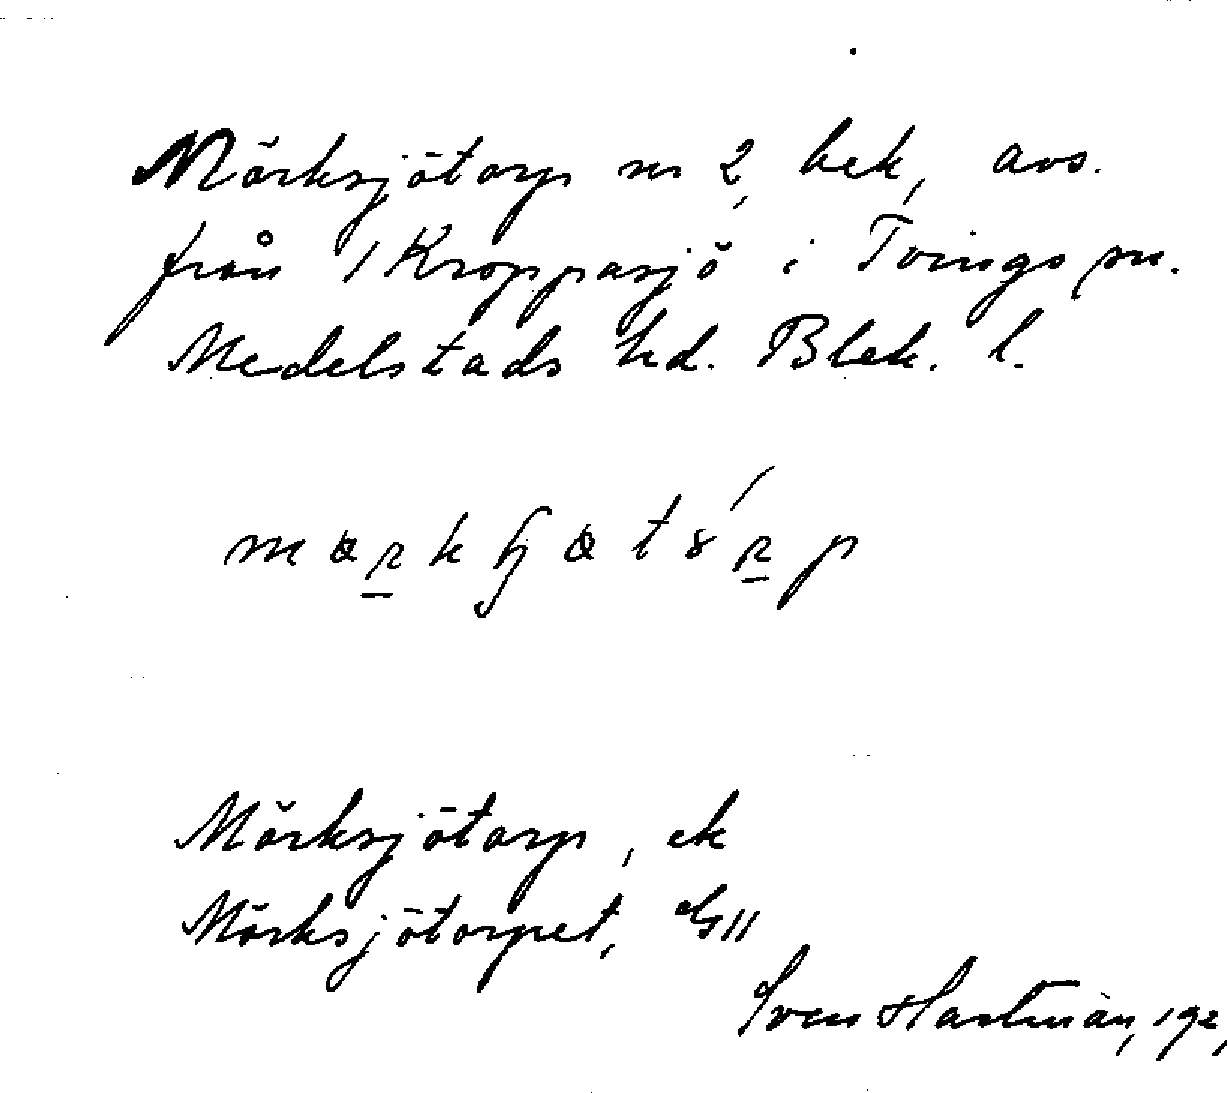 Mörksjötorp nr 2, bek, avs.
från 1 Kroppasjö i Tvings sn.
Medelstads hd. Blek. l.
Mörksjötorp, ek
Mörksjötorpet, GII
Sven Hartman, 192